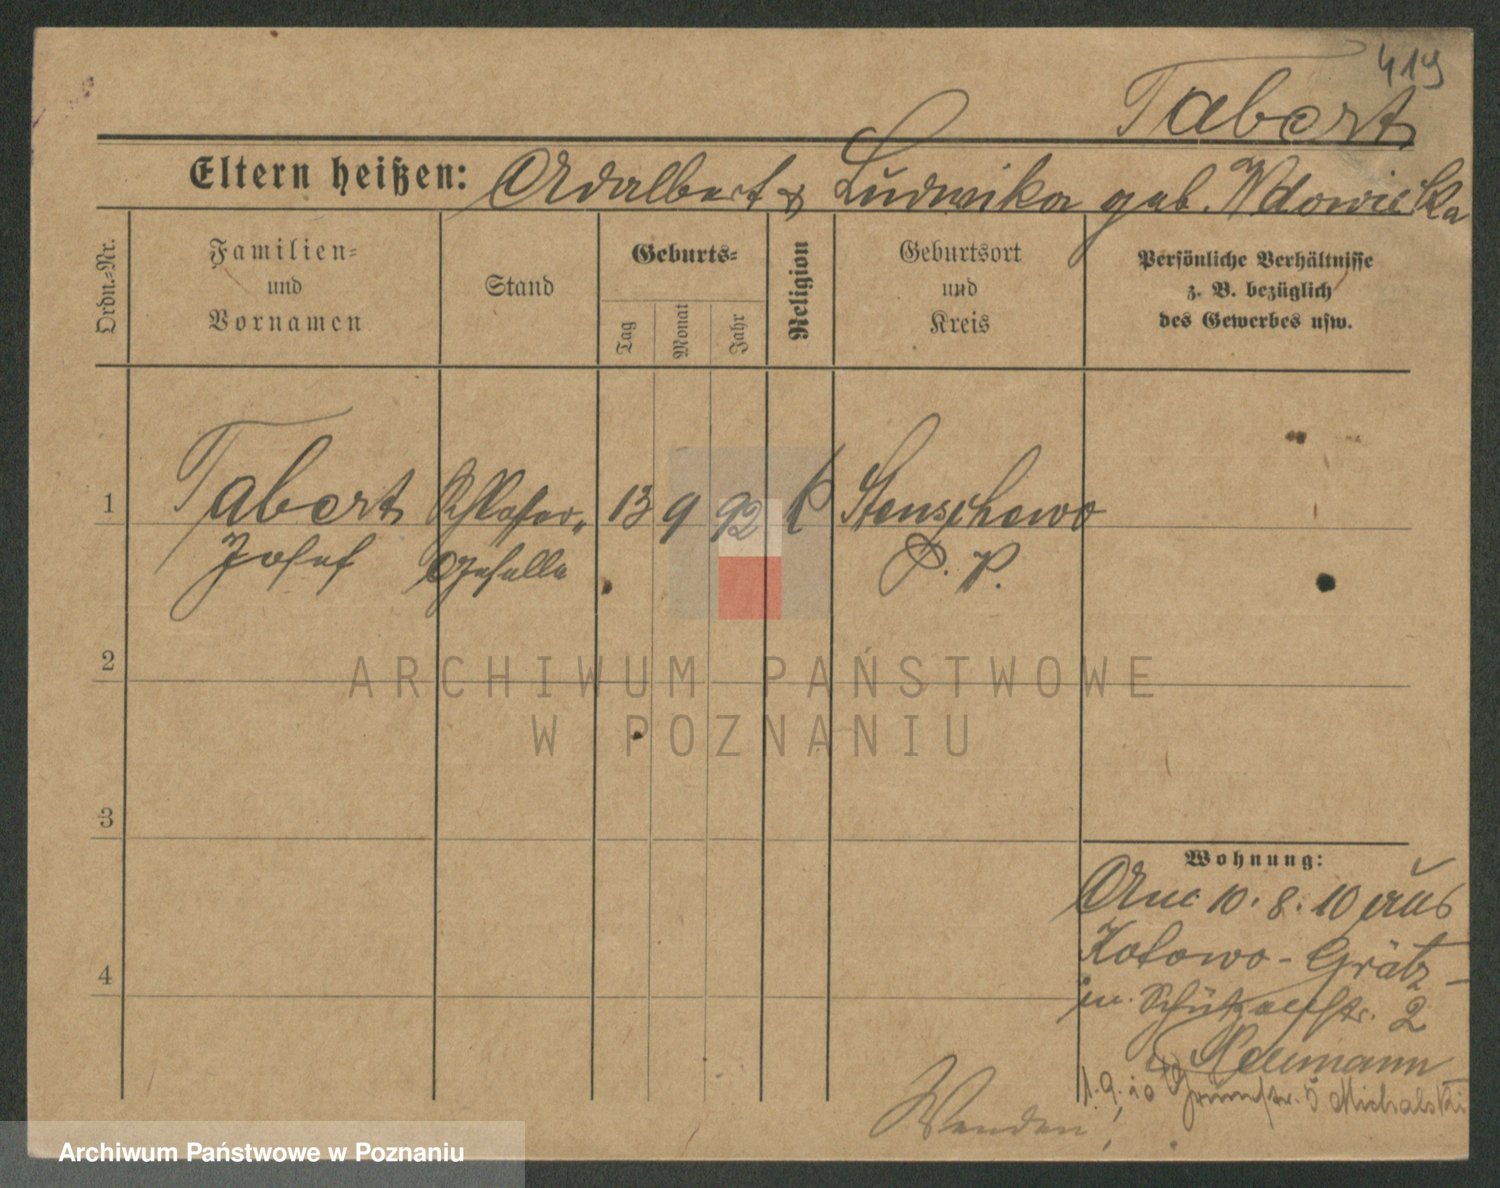 419
Tabert
Eltern heißen: Adalbert & Ludwika geb. Wdowicka
Ordn.-Nr.
Familien-
und
Vornamen
Stand
Geburts-
Tag
Monat
Jahr
Religion
Geburtsort
und
Kreis
Persönliche Verhältnisse
z. B. bezüglich
des Gewerbes usw.
1 Tabert Schlosser- 13 9 92 k Stenschewo
Josef Geselle P. W.
2
ARCHIWUM PAŃSTWOWE
W POZNANIU
3
Wohnung:
Am 10. 8. 10 aus
Kotowo - Grätz -
in. Schützenstr. 2
Neumann
4
1. 9. 10 Grünstr. 5 Michalski
Wenden!
Archiwum Państwowe w Poznaniu